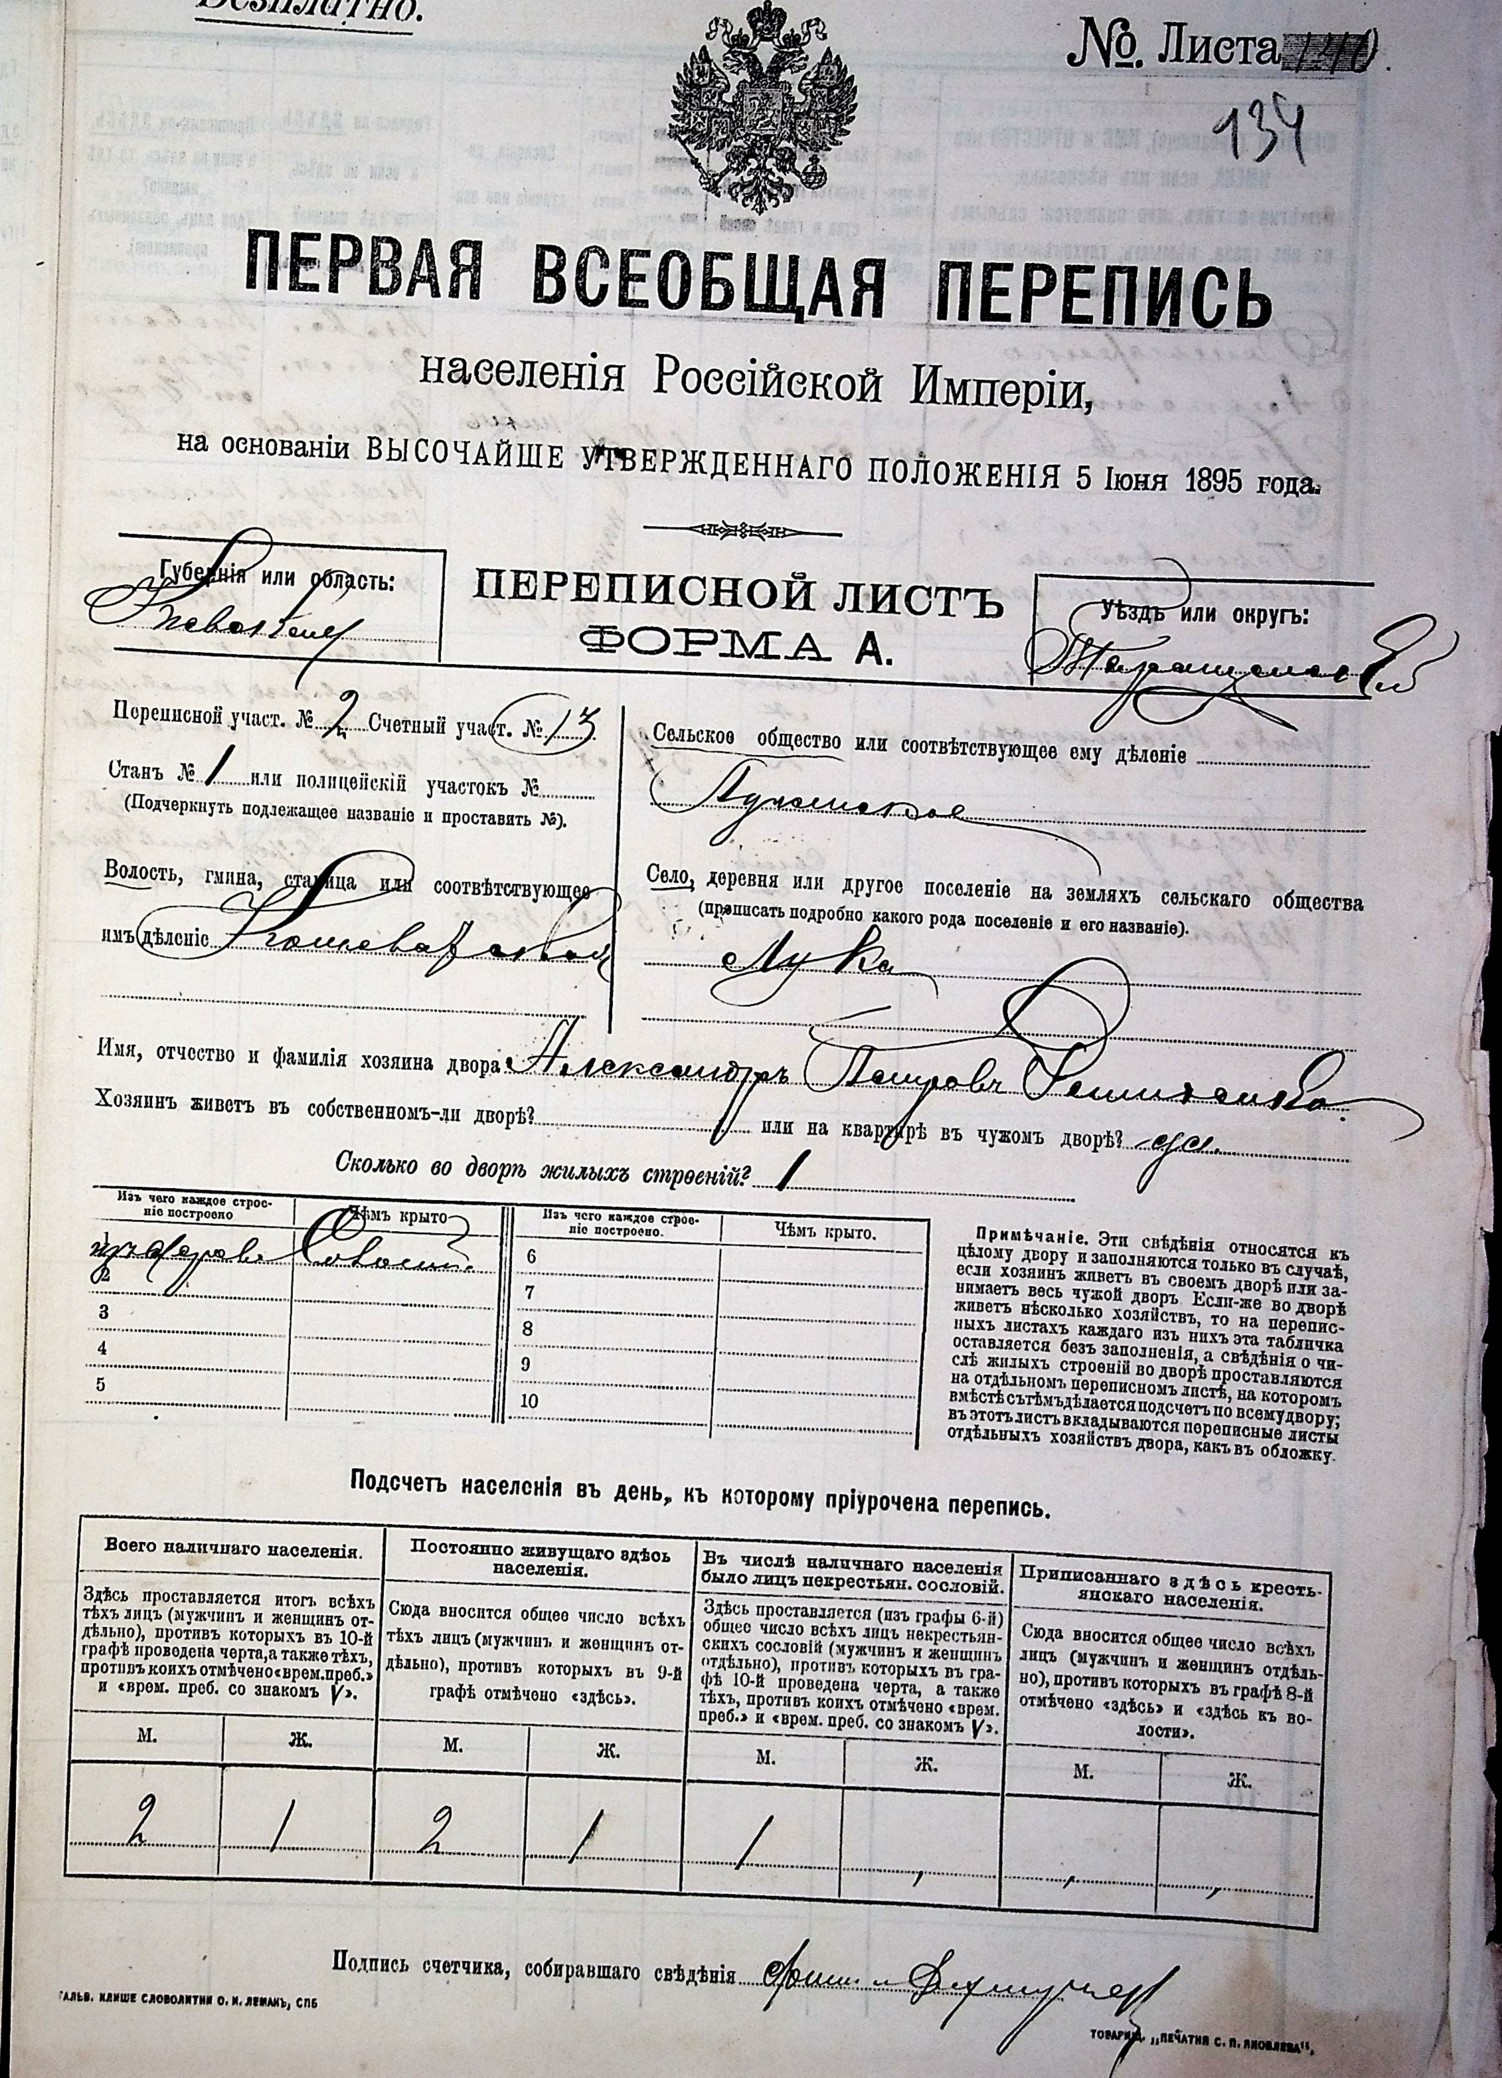 Безплатно.
№. Листа 140.
134
ПЕРВАЯ ВСЕОБЩАЯ ПЕРЕПИСЬ
населенія Россійской Имперіи,
на основаніи ВЫСОЧАЙШЕ УТВЕРЖДЕННАГО ПОЛОЖЕНІЯ 5 Іюня 1895 года.
Губернія или область:
Кіевская
ПЕРЕПИСНОЙ ЛИСТЪ
ФОРМА А.
Уѣздъ или округъ:
Таращанскій
Переписной участ. № 2 Счетный участ. № 13
Станъ № 1 или полицейскій участокъ №
(Подчеркнуть подлежащее названіе и проставить №).
Волость, гмина, станица или соотвѣтствующее
имъ дѣленіе Кошеватская
Сельское общество или соотвѣтствующее ему дѣленіе
Лукянское
Село, деревня или другое поселеніе на земляхъ сельскаго общества
(прописать подробно какого рода поселеніе и его названіе).
Лука
Имя, отчество и фамилія хозяина двора Александръ Петровъ
Хозяинъ живетъ въ собственномъ-ли дворѣ? или на квартирѣ въ чужомъ дворѣ? да.
Сколько во дворѣ жилыхъ строеній? 1
Изъ чего каждое строе-
ніе построено
Чѣмъ крыто
Изъ чего каждое строе-
ніе построено.
Чѣмъ крыто.
1 изъ дерева Соломой.
2
3
4
5
6
7
8
9
10
Примѣчаніе. Эти свѣдѣнія относятся къ
цѣлому двору и заполняются только въ случаѣ,
если хозяинъ живетъ въ своемъ дворѣ или за-
нимаетъ весь чужой дворъ. Если-же во дворѣ
живетъ нѣсколько хозяйствъ, то на перепис-
ныхъ листахъ каждаго изъ нихъ эта табличка
оставляется безъ заполненія, а свѣдѣнія о чи-
слѣ жилыхъ строеній во дворѣ проставляются
на отдѣльномъ переписномъ листѣ, на которомъ
вмѣстѣ съ тѣмъ дѣлается подсчетъ по всему двору;
въ этотъ листъ вкладываются переписные листы
отдѣльныхъ хозяйствъ двора, какъ въ обложку.
Подсчетъ населенія въ день, къ которому пріурочена перепись.
Всего наличнаго населенія.
Здѣсь проставляется итогъ всѣхъ
тѣхъ лицъ (мужчинъ и женщинъ от-
дѣльно), противъ которыхъ въ 10-й
графѣ проведена черта, а также тѣхъ,
противъ коихъ отмѣчено «врем. преб.»
и «врем. преб. со знакомъ V».
Постоянно живущаго здѣсь
населенія.
Сюда вносится общее число всѣхъ
тѣхъ лицъ (мужчинъ и женщинъ от-
дѣльно), противъ которыхъ въ 9-й
графѣ отмѣчено «здѣсь».
Въ числѣ наличнаго населенія
было лицъ некрестьян. сословій.
Здѣсь проставляется (изъ графы 6-й)
общее число всѣхъ лицъ некрестьян-
скихъ сословій (мужчинъ и женщинъ
отдѣльно), противъ которыхъ въ гра-
фѣ 10-й проведена черта, а также
тѣхъ, противъ коихъ отмѣчено «врем.
преб.» и «врем. преб. со знакомъ V».
Приписаннаго здѣсь кресть-
янскаго населенія.
Сюда вносится общее число всѣхъ
лицъ (мужчинъ и женщинъ отдѣль-
но), противъ которыхъ въ графѣ 8-й
отмѣчено «здѣсь» и «здѣсь къ во-
лости».
М. Ж. М. Ж. М. Ж. М. Ж.
2 1 2 1 1 , , ,
Подпись счетчика, собиравшаго свѣдѣнія
ГАЛЬВ. КЛИШЕ СЛОВОЛИТНИ О. И. ЛЕМАНЪ, СПБ
ТОВАРИЩ. „ПЕЧАТНЯ С. П. ЯКОВЛЕВА“,